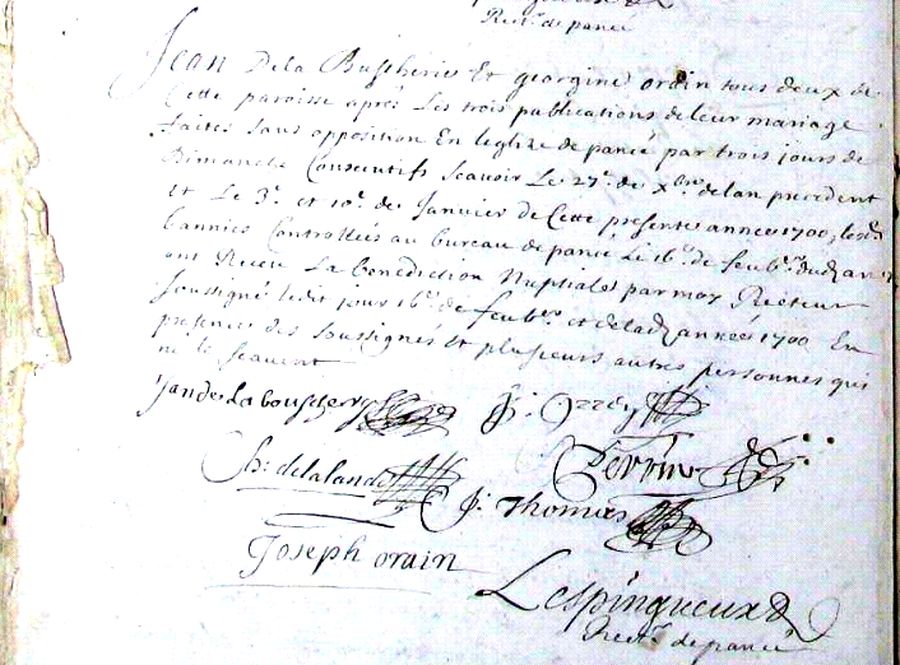 Rect.r de pancé
Jean Dela Buscherie Et georgine ordin tous deux de
Cette paroisse aprés Les trois publications de leur mariage
faites sans opposition En leglize de pancé par trois jours de
Dimanche Consecutifs Scavoir Le 27.e de xbre de lan precedent
Et Le 3.e et 10.e de Janvier de Cette presente année 1700, lesd
bannies Controllées au bureau de pancé Le 16.e de feub.er dud an
ont Receu La benediction Nuptiale par moy Recteur
Soussigné ledit jour 16.e de feub.er et de lad année 1700 En
presence des Soussignés Et plusieurs autres personnes qui
ne le scavent
Jan de La bouschery
Ch: de lalande Perrin
P. Thomas
Joseph orain
Lespingueux
Rect.r de pancé